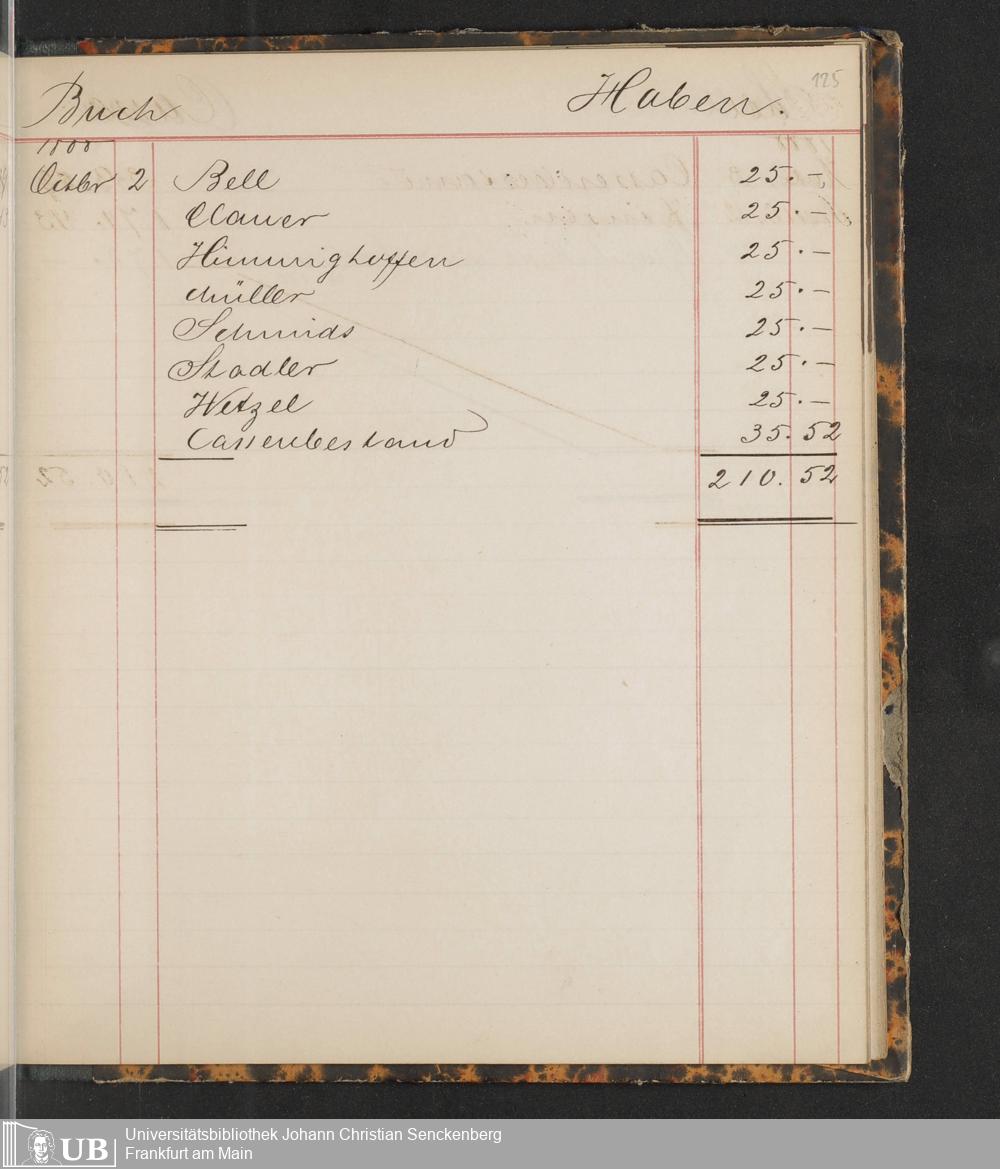 125
Buch Haben.
Octbr 2 Bell 25.—
Clauer 25.—
Himmighoffen 25.—
Müller 25.—
Schmids 25.—
Stadler 25.—
Wetzel 25.—
Cassenbestand 35.52
210.52
UB
Universitätsbibliothek Johann Christian Senckenberg
Frankfurt am Main